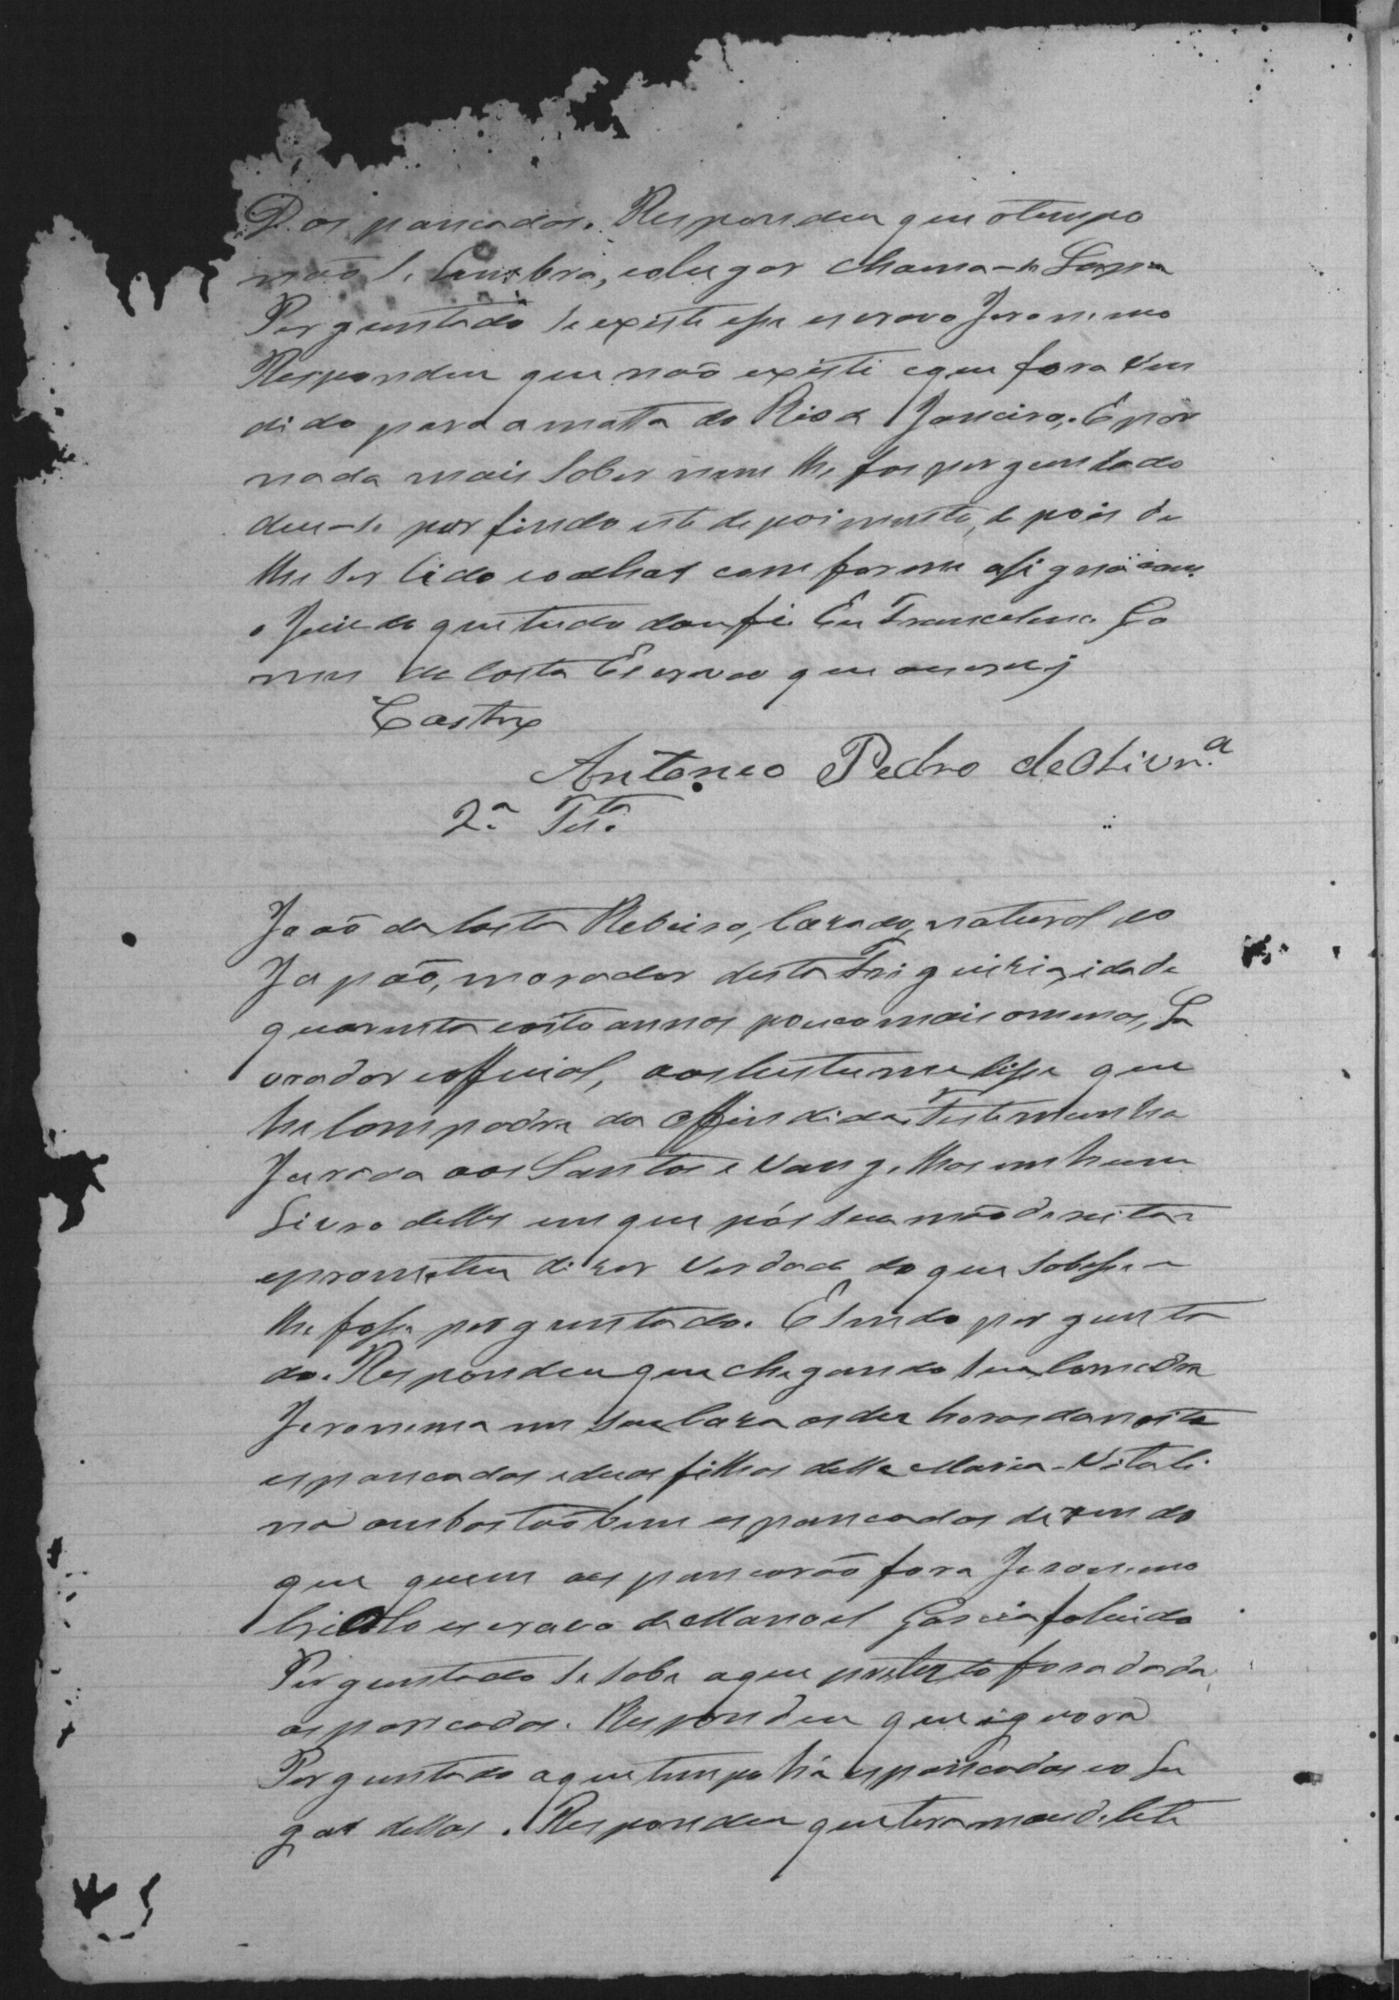 D. as pancadas. Respondeu que o tempo
não se lembra, e o lugar chama-se Lapa
Perguntado se existe esse escravo Jeronimo
Respondeu que não existi e que fora ven
dido para a matta do Rio de Janeiro. E por
nada mais saber nem lhe foi perguntado
deu-se por findo este depoimento, depois de
lhe ser lido e o achar comforme assigna com
o Juiz do que tudo dou fé. Eu Francelino Go
mes da Costa Escrivão que oescrevj
Castro
Antoneo Pedro de Olivr.ª
2.ª Test.ª
João da Costa Rebeiro, Cazado, natural do
Japão, morador desta Freigueizia, idade
quarenta e oito annos pouco mais o menos, La
vrador e official, aos custume disse que
he Compadre da Offendida. Testemunha
Jurada aos Santos Evangelhos em hum
Livro delles em que pôs sua mão dereita
e prometeu dizer Verdade do que sobesse e
lhe fosse perguntado. E sendo pergunta
do. Respondeu que chegando sua Comadre
Jeronima em sua Caza as dez horas da noite
espancada e duas filhas della Maria e Vitali
na ambas tãobem espancadas dezendo
que quem as pancarão fora Jeronimo
Criolo escravo de Manoel Garcia falicido
Perguntado se sabe a que pretexto fora dada
as pancadas. Respondeu que ignora
Perguntado a que tempo há as pancadas e o Lu
gar dellas. Respondeu que tera mais de sete